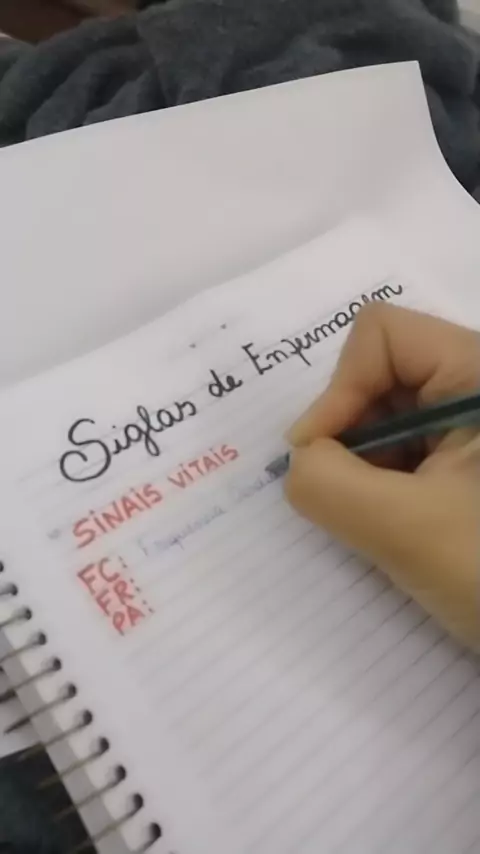 Siglas de Enfermagem
SiNAiS ViTAiS
FC: Frequência
FR:
PA: